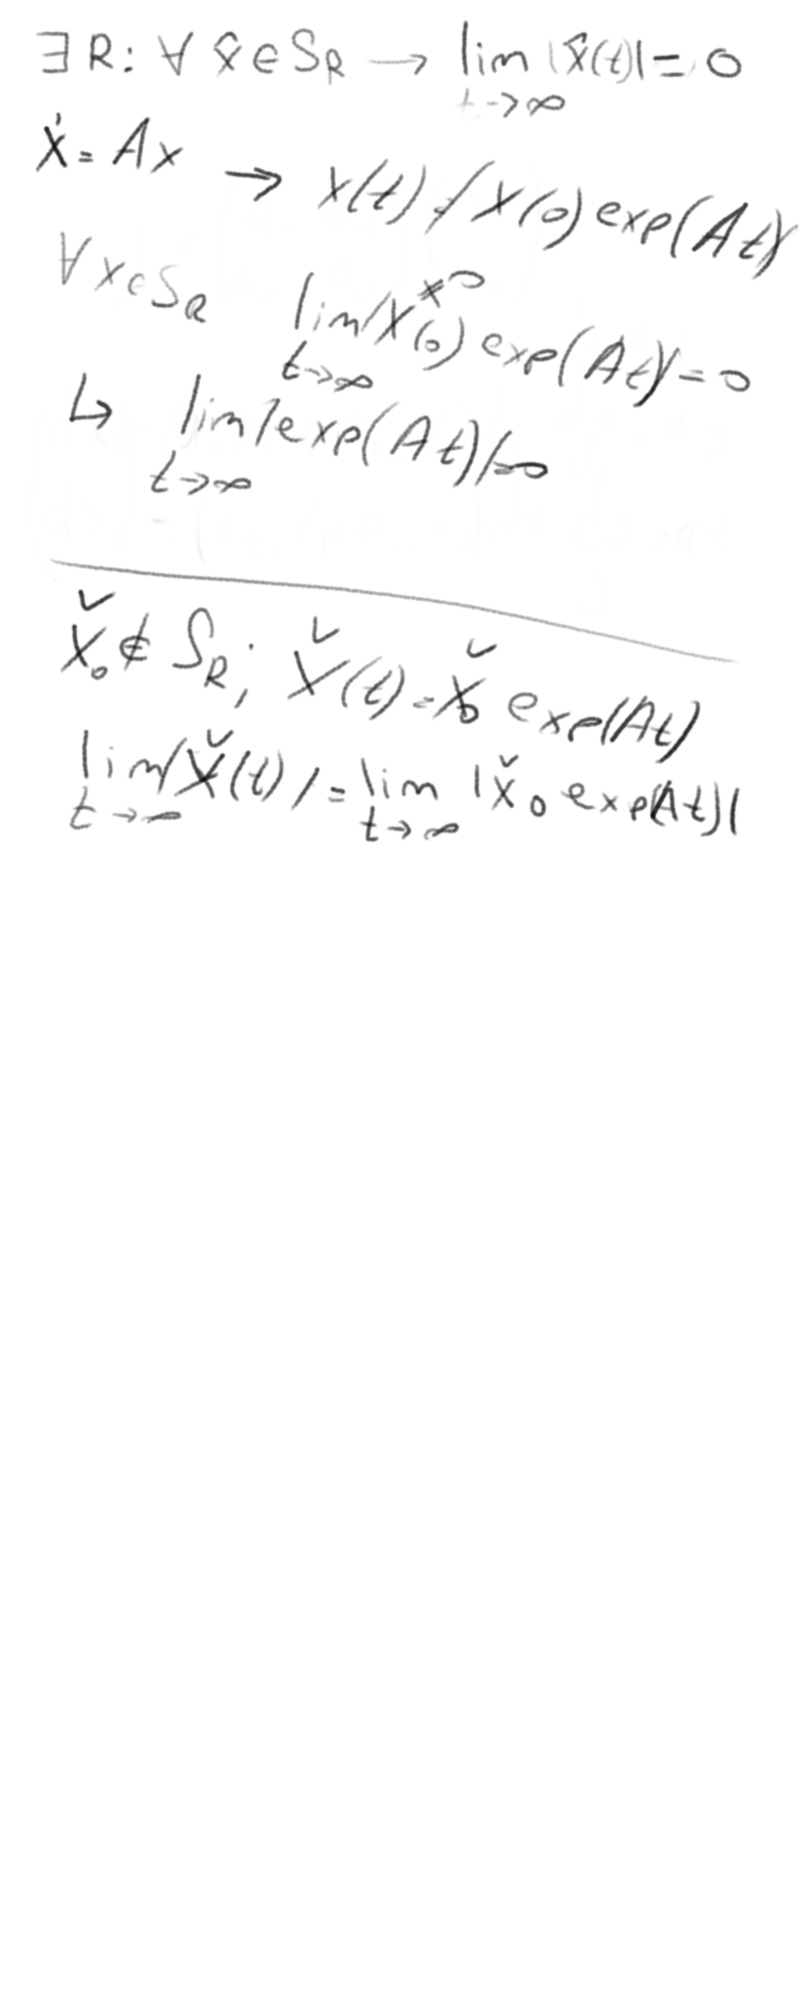 ∃ R: ∀ x̂ ∈ S_R → lim_{t→∞} |x̂(t)| = 0
ẋ = Ax → x(t) = |x(0) exp(At)|
∀ x ∈ S_R lim_{t→∞} |x(0) exp(At)| = 0
↳ lim_{t→∞} |exp(At)| = 0
x̌₀ ∉ S_R; x̌(t) = x̌₀ exp(At)
lim_{t→∞} |x̌(t)| = lim_{t→∞} |x̌₀ exp(At)|